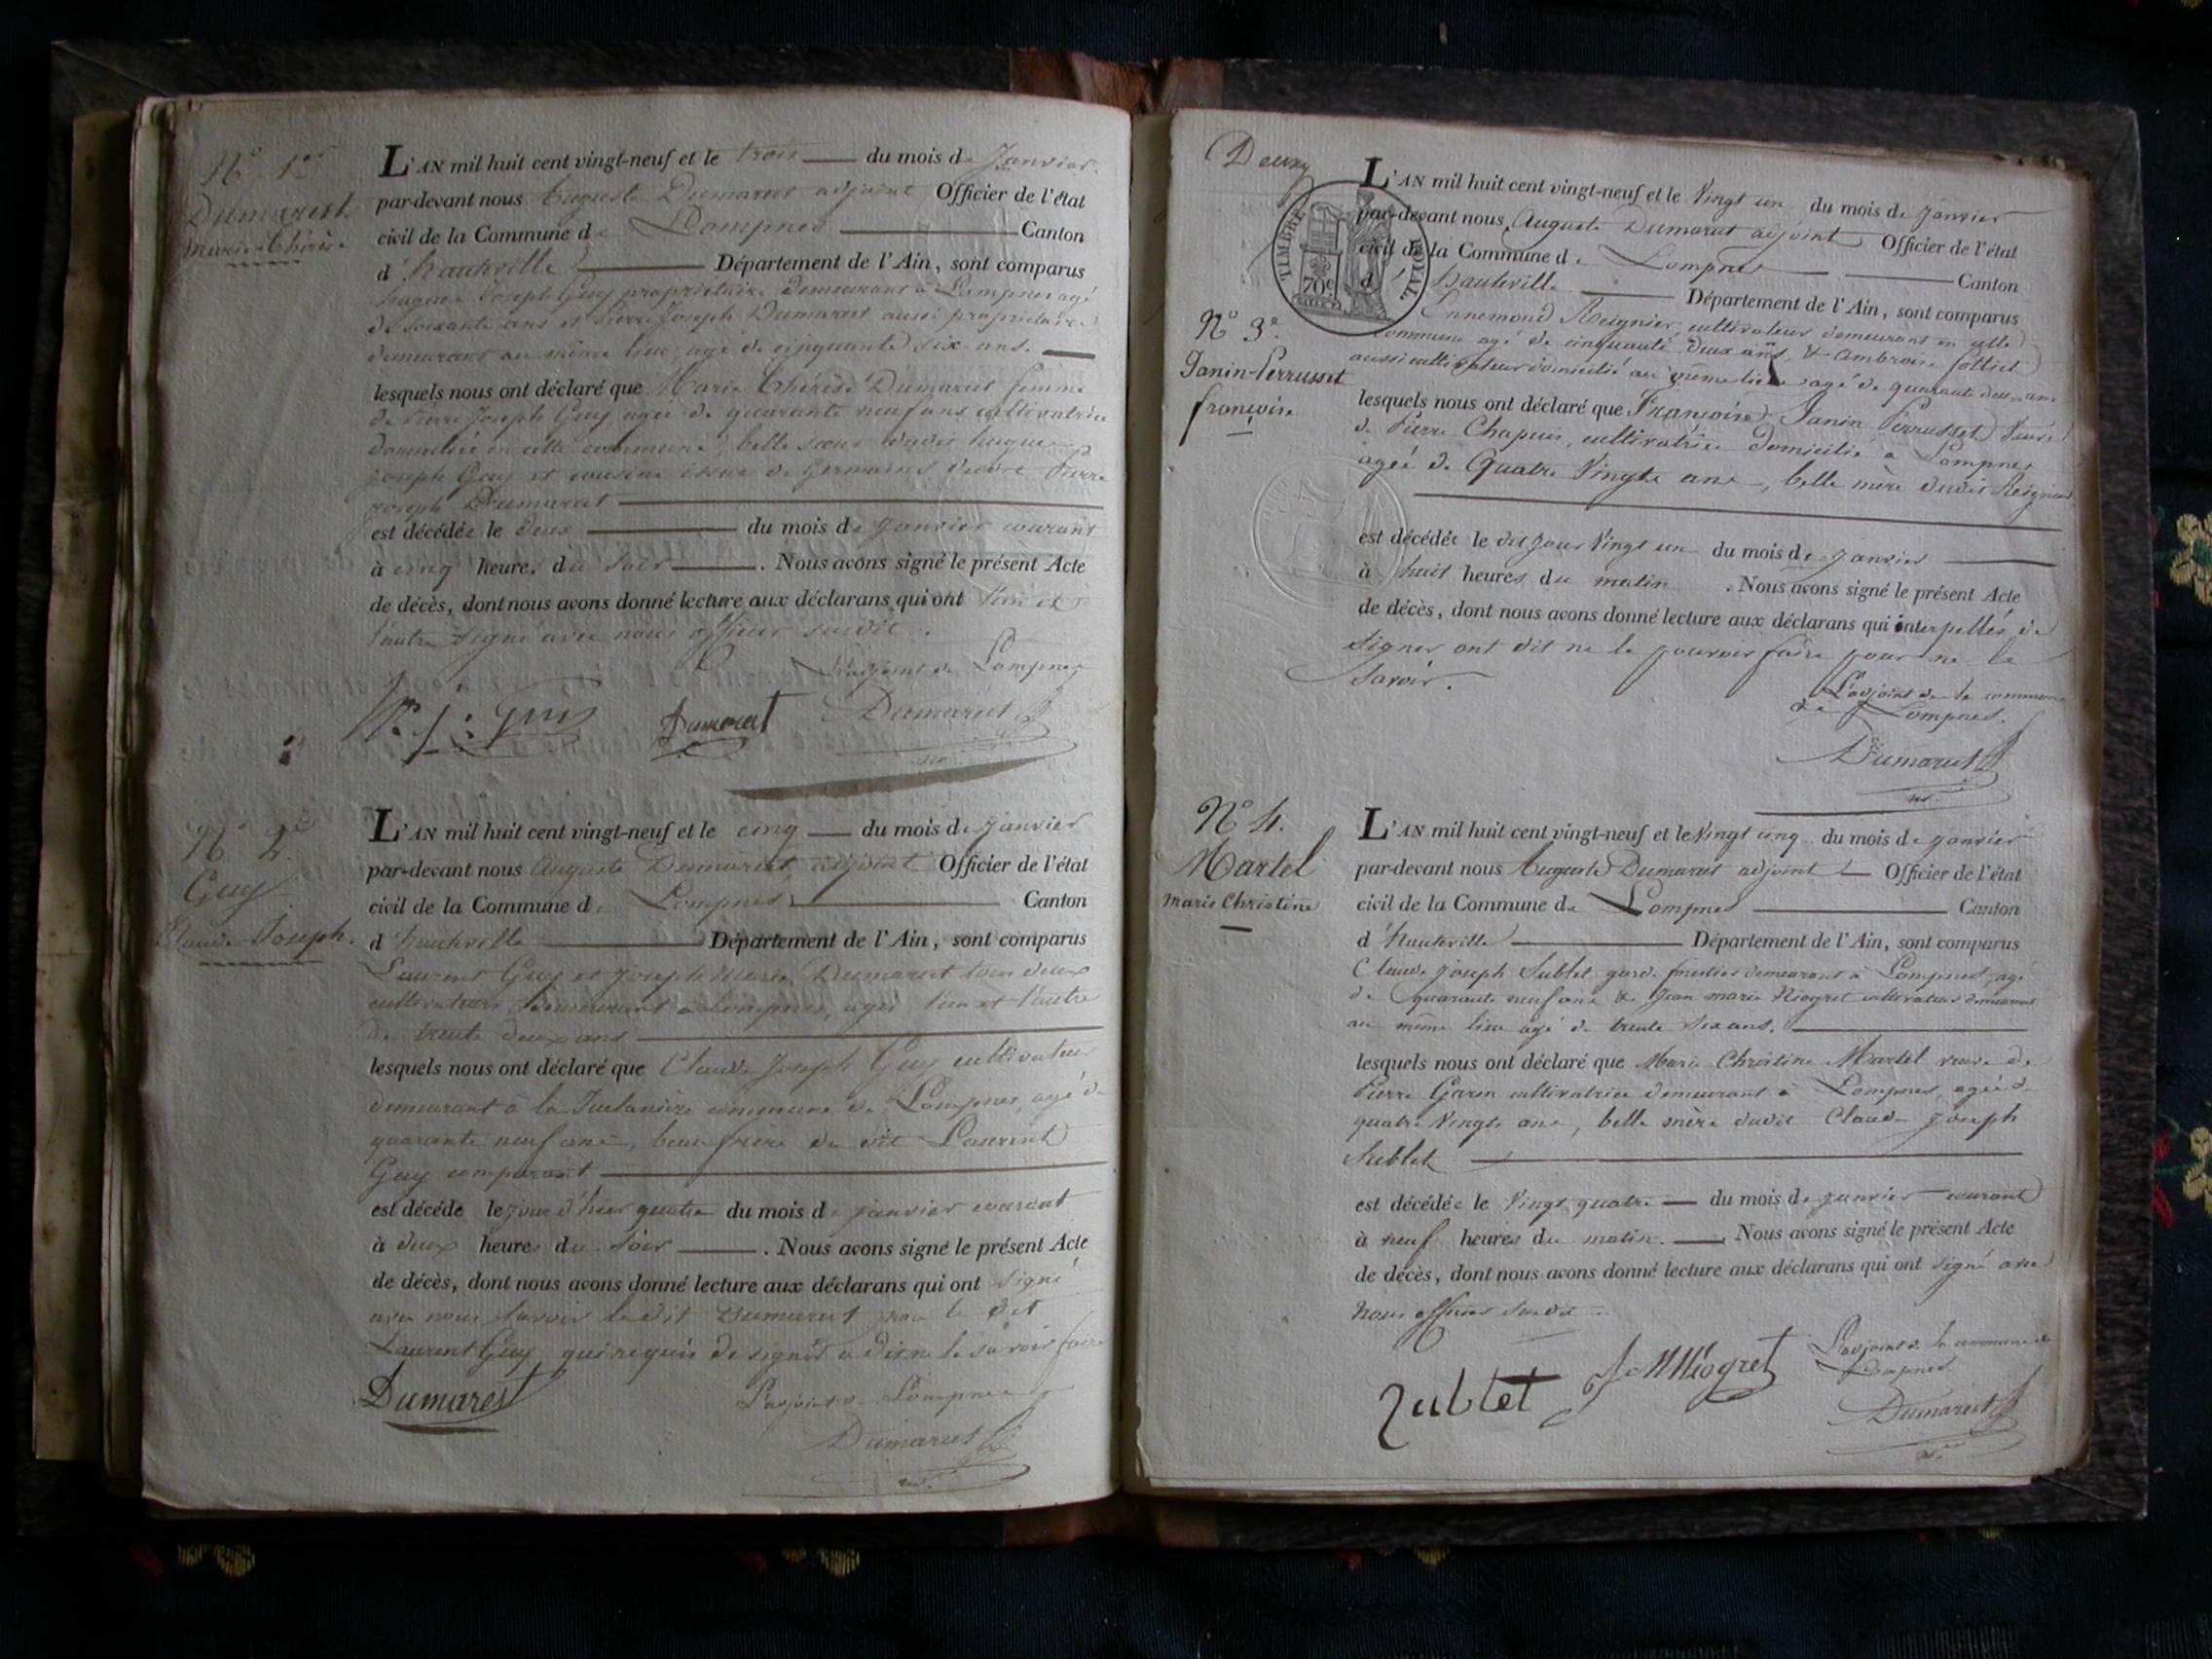 N° 1er
Dumarest
Marie-Thérèse
L'AN mil huit cent vingt-neuf et le trois du mois de Janvier
par-devant nous Auguste Dumarest adjoint Officier de l'état
civil de la Commune de Lompnes Canton
d'hauteville Département de l'Ain, sont comparus
hugues Joseph Guy propriétaire demeurant à Lompnes agé
de soixante ans et pierre Joseph Dumarest aussi propriétaire
demeurant au même lieu, agé de cinquante six ans.
lesquels nous ont déclaré que Marie Thérèse Dumarest femme
de pierre Joseph Guy agée de quarante neuf ans cultivatrice
domiciliée en cette commune, belle sœur dudit hugues
joseph Guy et cousine issue de Germains dudit Pierre
joseph Dumarest
est décédée le deux du mois de janvier courant
à cinq heures du soir. Nous avons signé le présent Acte
de décès, dont nous avons donné lecture aux déclarans qui ont l'un et
l'autre signé avec nous officier susdit.
L'adjoint de Lompnes
h. j. Guy Dumarest Dumarest
N° 2e
Guy
Claude Joseph.
L'AN mil huit cent vingt-neuf et le cinq du mois de janvier
par-devant nous Auguste Dumarest adjoint Officier de l'état
civil de la Commune de Lompnes Canton
d'hauteville Département de l'Ain, sont comparus
Laurent Guy et joseph Marie Dumarest tous deux
cultivateurs demeurant à Lompnes, agés l'un et l'autre
de trente deux ans
lesquels nous ont déclaré que Claude Joseph Guy cultivateur
demeurant à la commune de Lompnes, agé de
quarante neuf ans, beau frère du dit Laurent
Guy comparant
est décédé le jour d'hier quatre du mois de janvier courant
à deux heures du soir. Nous avons signé le présent Acte
de décès, dont nous avons donné lecture aux déclarans qui ont signé
avec nous savoir le dit Dumarest non le dit
Laurent Guy qui requis de signer a dit ne le savoir faire
Dumarest L'adjoint de Lompnes
Dumarest
Deux
TIMBRE ROYAL
70c
L'AN mil huit cent vingt-neuf et le Vingt un du mois de janvier
par-devant nous Auguste Dumarest adjoint Officier de l'état
civil de la Commune de Lompnes Canton
d'hauteville Département de l'Ain, sont comparus
N° 3e.
Janin-Perrusset
françoise
Ennemond Reignier, cultivateur demeurant en cette
commune agé de cinquante deux ans, & ambroise folliet
aussi cultivateur domicilié au même lieu agé de quarante deux ans
lesquels nous ont déclaré que Françoise Janin Perrusset veuve
de Pierre Chapuis, cultivatrice domicilié à Lompnes
agée de Quatre Vingts ans, belle mère dudit Reignier
est décédée le dit jour Vingt un du mois de janvier
à huit heures du matin. Nous avons signé le présent Acte
de décès, dont nous avons donné lecture aux déclarans qui interpellés de
signer ont dit ne le pouvoir faire pour ne le
savoir.
L'adjoint de la commune
de Lompnes.
Dumarest
N° 4.
Martel
Marie Christine
L'AN mil huit cent vingt-neuf et le Vingt cinq du mois de janvier
par-devant nous Auguste Dumarest adjoint Officier de l'état
civil de la Commune de Lompnes Canton
d'hauteville Département de l'Ain, sont comparus
Claude joseph Sublet garde forestier demeurant à Lompnes, agé
de quarante neuf ans & Jean marie Niogret cultivateur demeurant
au même lieu agé de trente six ans.
lesquels nous ont déclaré que Marie Christine Martel veuve de
Pierre Garin cultivatrice demeurant à Lompnes, agée de
quatre Vingts ans, belle mère dudit Claude joseph
Sublet
est décédée le Vingt quatre du mois de janvier courant
à neuf heures du matin. Nous avons signé le présent Acte
de décès, dont nous avons donné lecture aux déclarans qui ont signé avec
nous officier susdit.
Sublet J. M Niogret L'adjoint de la commune de
Lompnes
Dumarest